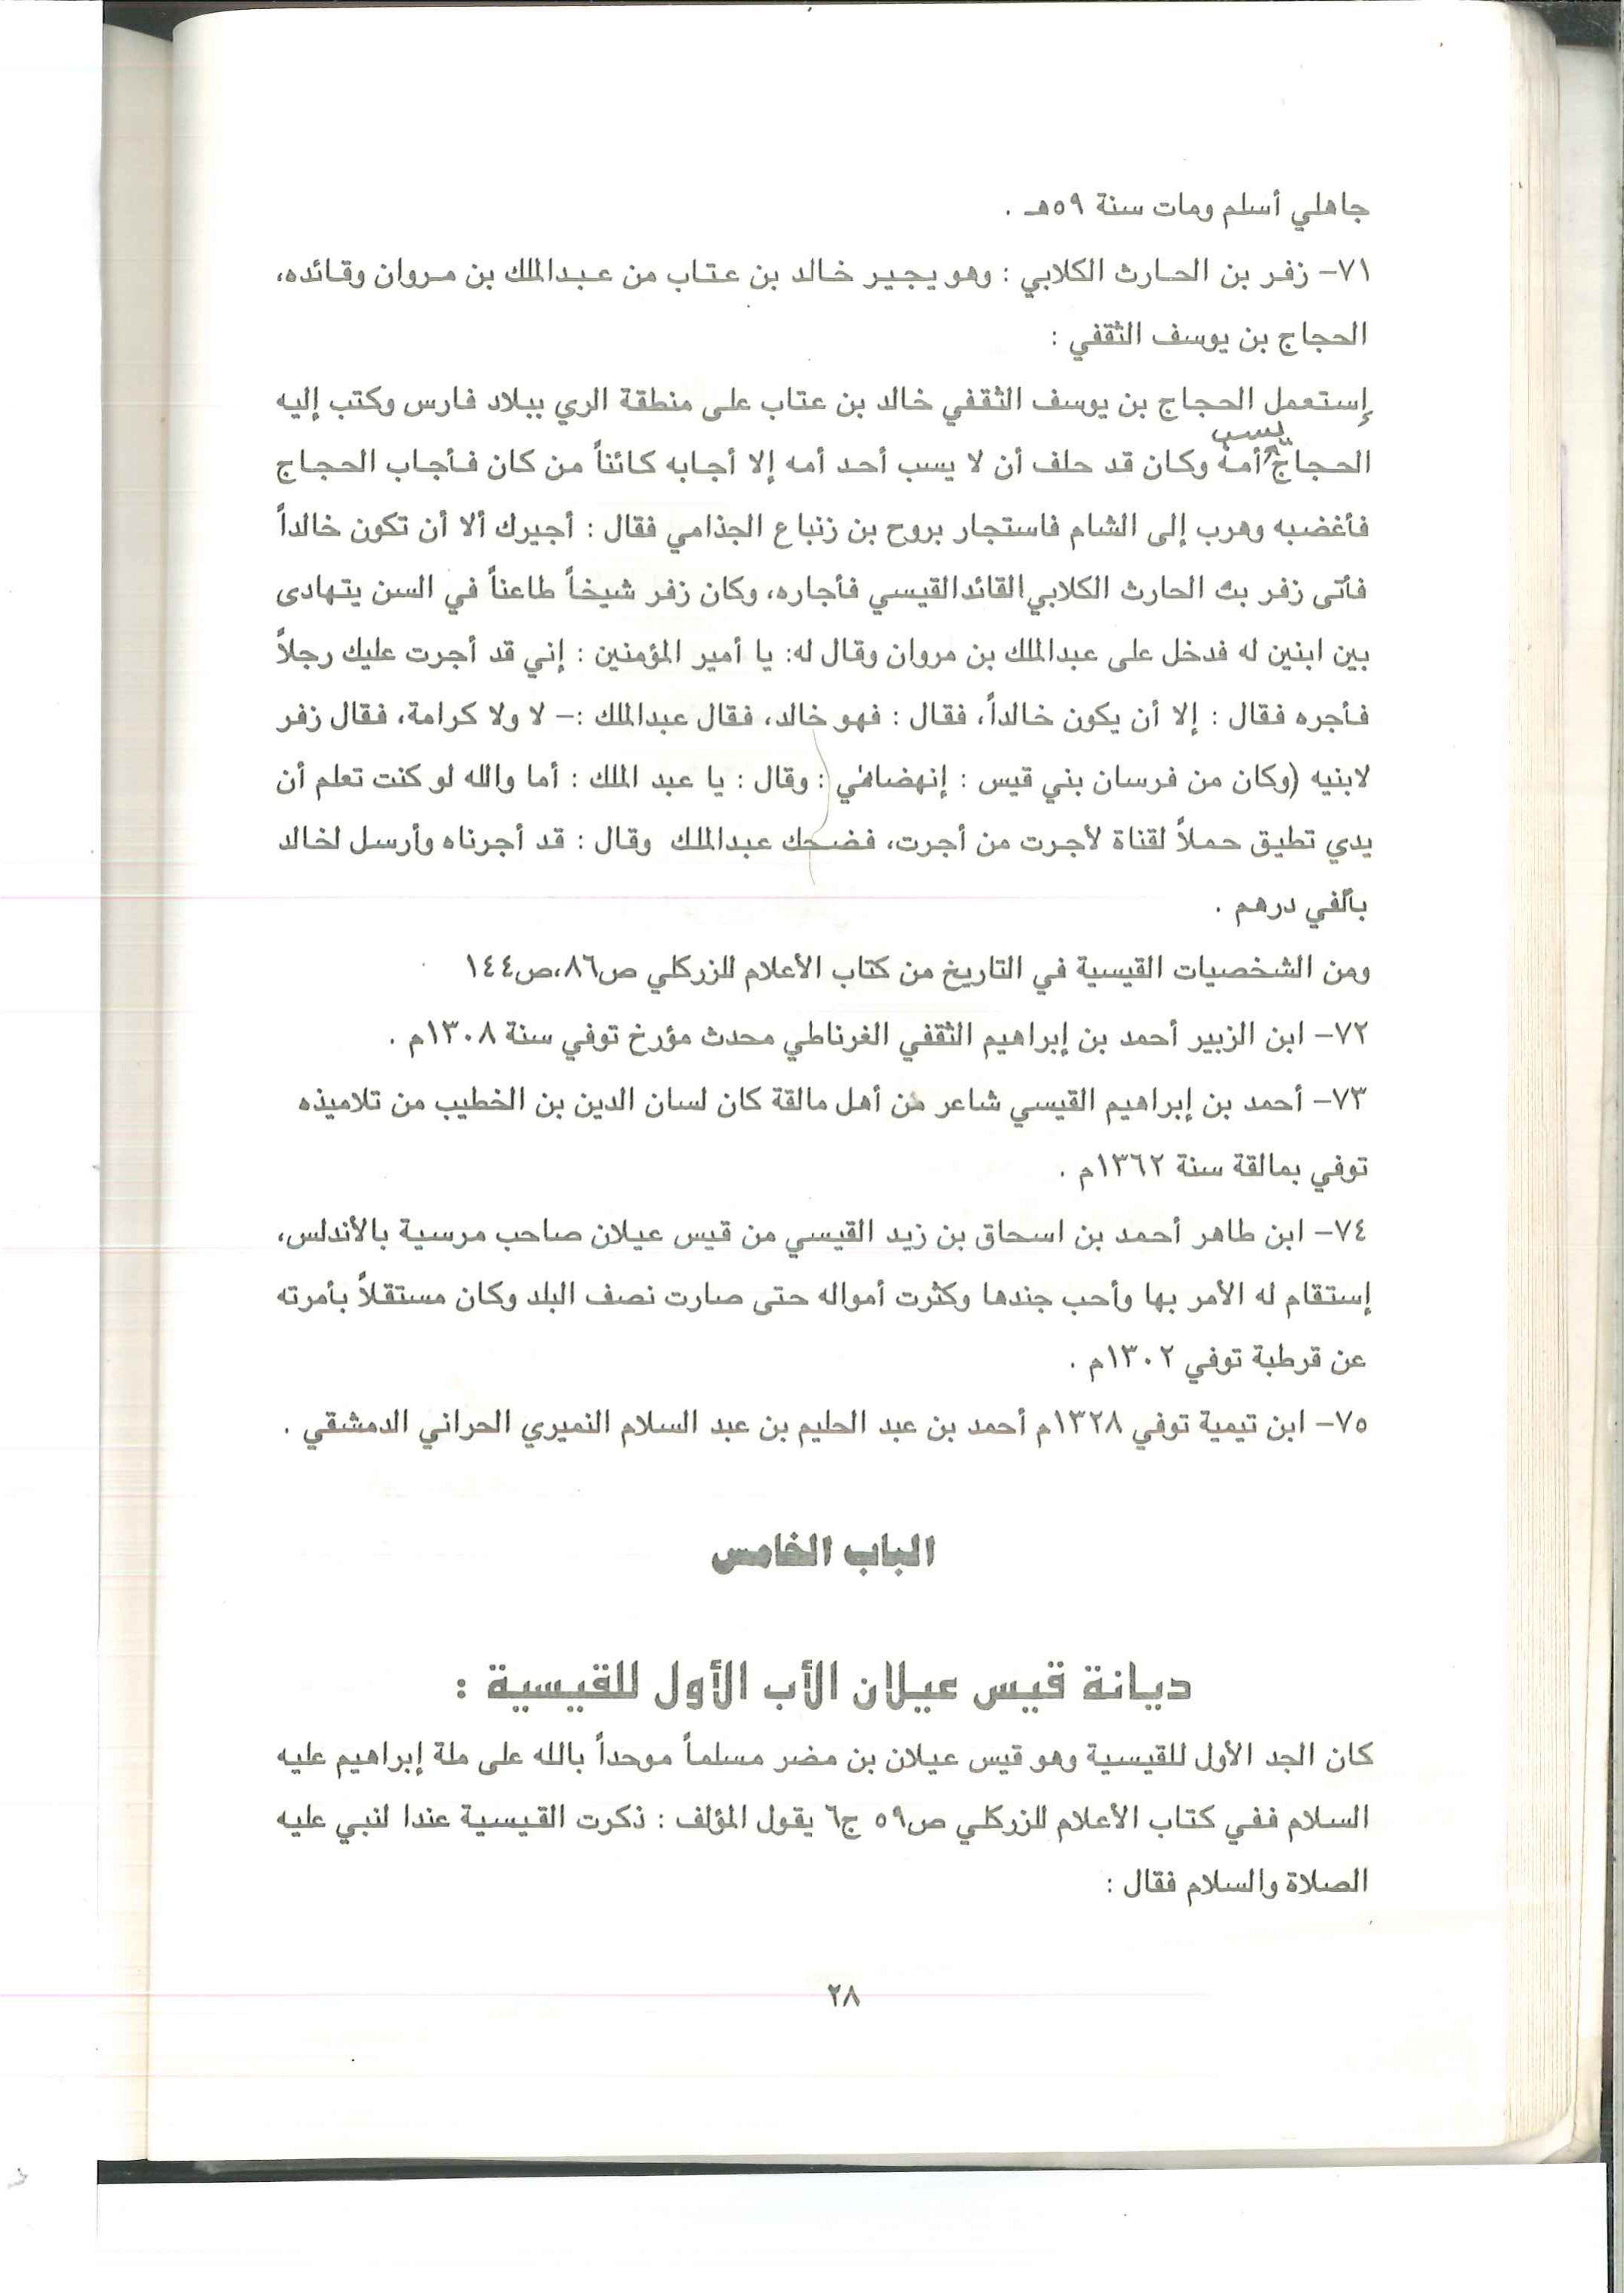 جاهلي أسلم ومات سنة ٥٩هـ .
٧١- زفر بن الحارث الكلابي : وهو يجير خالد بن عتاب من عبدالملك بن مروان وقائده،
الحجاج بن يوسف الثقفي :
إستعمل الحجاج بن يوسف الثقفي خالد بن عتاب على منطقة الري ببلاد فارس وكتب إليه
يسب
الحجاج أمه وكان قد حلف أن لا يسب أحد أمه إلا أجابه كائناً من كان فأجاب الحجاج
فأغضبه وهرب إلى الشام فاستجار بروح بن زنباع الجذامي فقال : أجيرك ألا أن تكون خالداً
فأتى زفر بن الحارث الكلابي القائدالقيسي فأجاره، وكان زفر شيخاً طاعناً في السن يتهادى
بين ابنين له فدخل على عبدالملك بن مروان وقال له: يا أمير المؤمنين : إني قد أجرت عليك رجلاً
فأجره فقال : إلا أن يكون خالداً، فقال : فهو خالد، فقال عبدالملك :- لا ولا كرامة، فقال زفر
لابنيه (وكان من فرسان بني قيس : إنهضاني : وقال : يا عبد الملك : أما والله لو كنت تعلم أن
يدي تطيق حملاً لقناة لأجرت من أجرت، فضحك عبدالملك وقال : قد أجرناه وأرسل لخالد
بألفي درهم .
ومن الشخصيات القيسية في التاريخ من كتاب الأعلام للزركلي ص٨٦،ص١٤٤
٧٢- ابن الزبير أحمد بن إبراهيم الثقفي الغرناطي محدث مؤرخ توفي سنة ١٣٠٨م .
٧٣- أحمد بن إبراهيم القيسي شاعر من أهل مالقة كان لسان الدين بن الخطيب من تلاميذه
توفي بمالقة سنة ١٣٦٢م .
٧٤- ابن طاهر أحمد بن اسحاق بن زيد القيسي من قيس عيلان صاحب مرسية بالأندلس،
إستقام له الأمر بها وأحب جندها وكثرت أمواله حتى صارت نصف البلد وكان مستقلاً بأمرته
عن قرطبة توفي ١٣٠٢م .
٧٥- ابن تيمية توفي ١٣٢٨م أحمد بن عبد الحليم بن عبد السلام النميري الحراني الدمشقي .
الباب الخامس
ديانة قيس عيلان الأب الأول للقيسية :
كان الجد الأول للقيسية وهو قيس عيلان بن مضر مسلماً موحداً بالله على ملة إبراهيم عليه
السلام ففي كتاب الأعلام للزركلي ص٥٩ ج٦ يقول المؤلف : ذكرت القيسية عندا لنبي عليه
الصلاة والسلام فقال :
٢٨